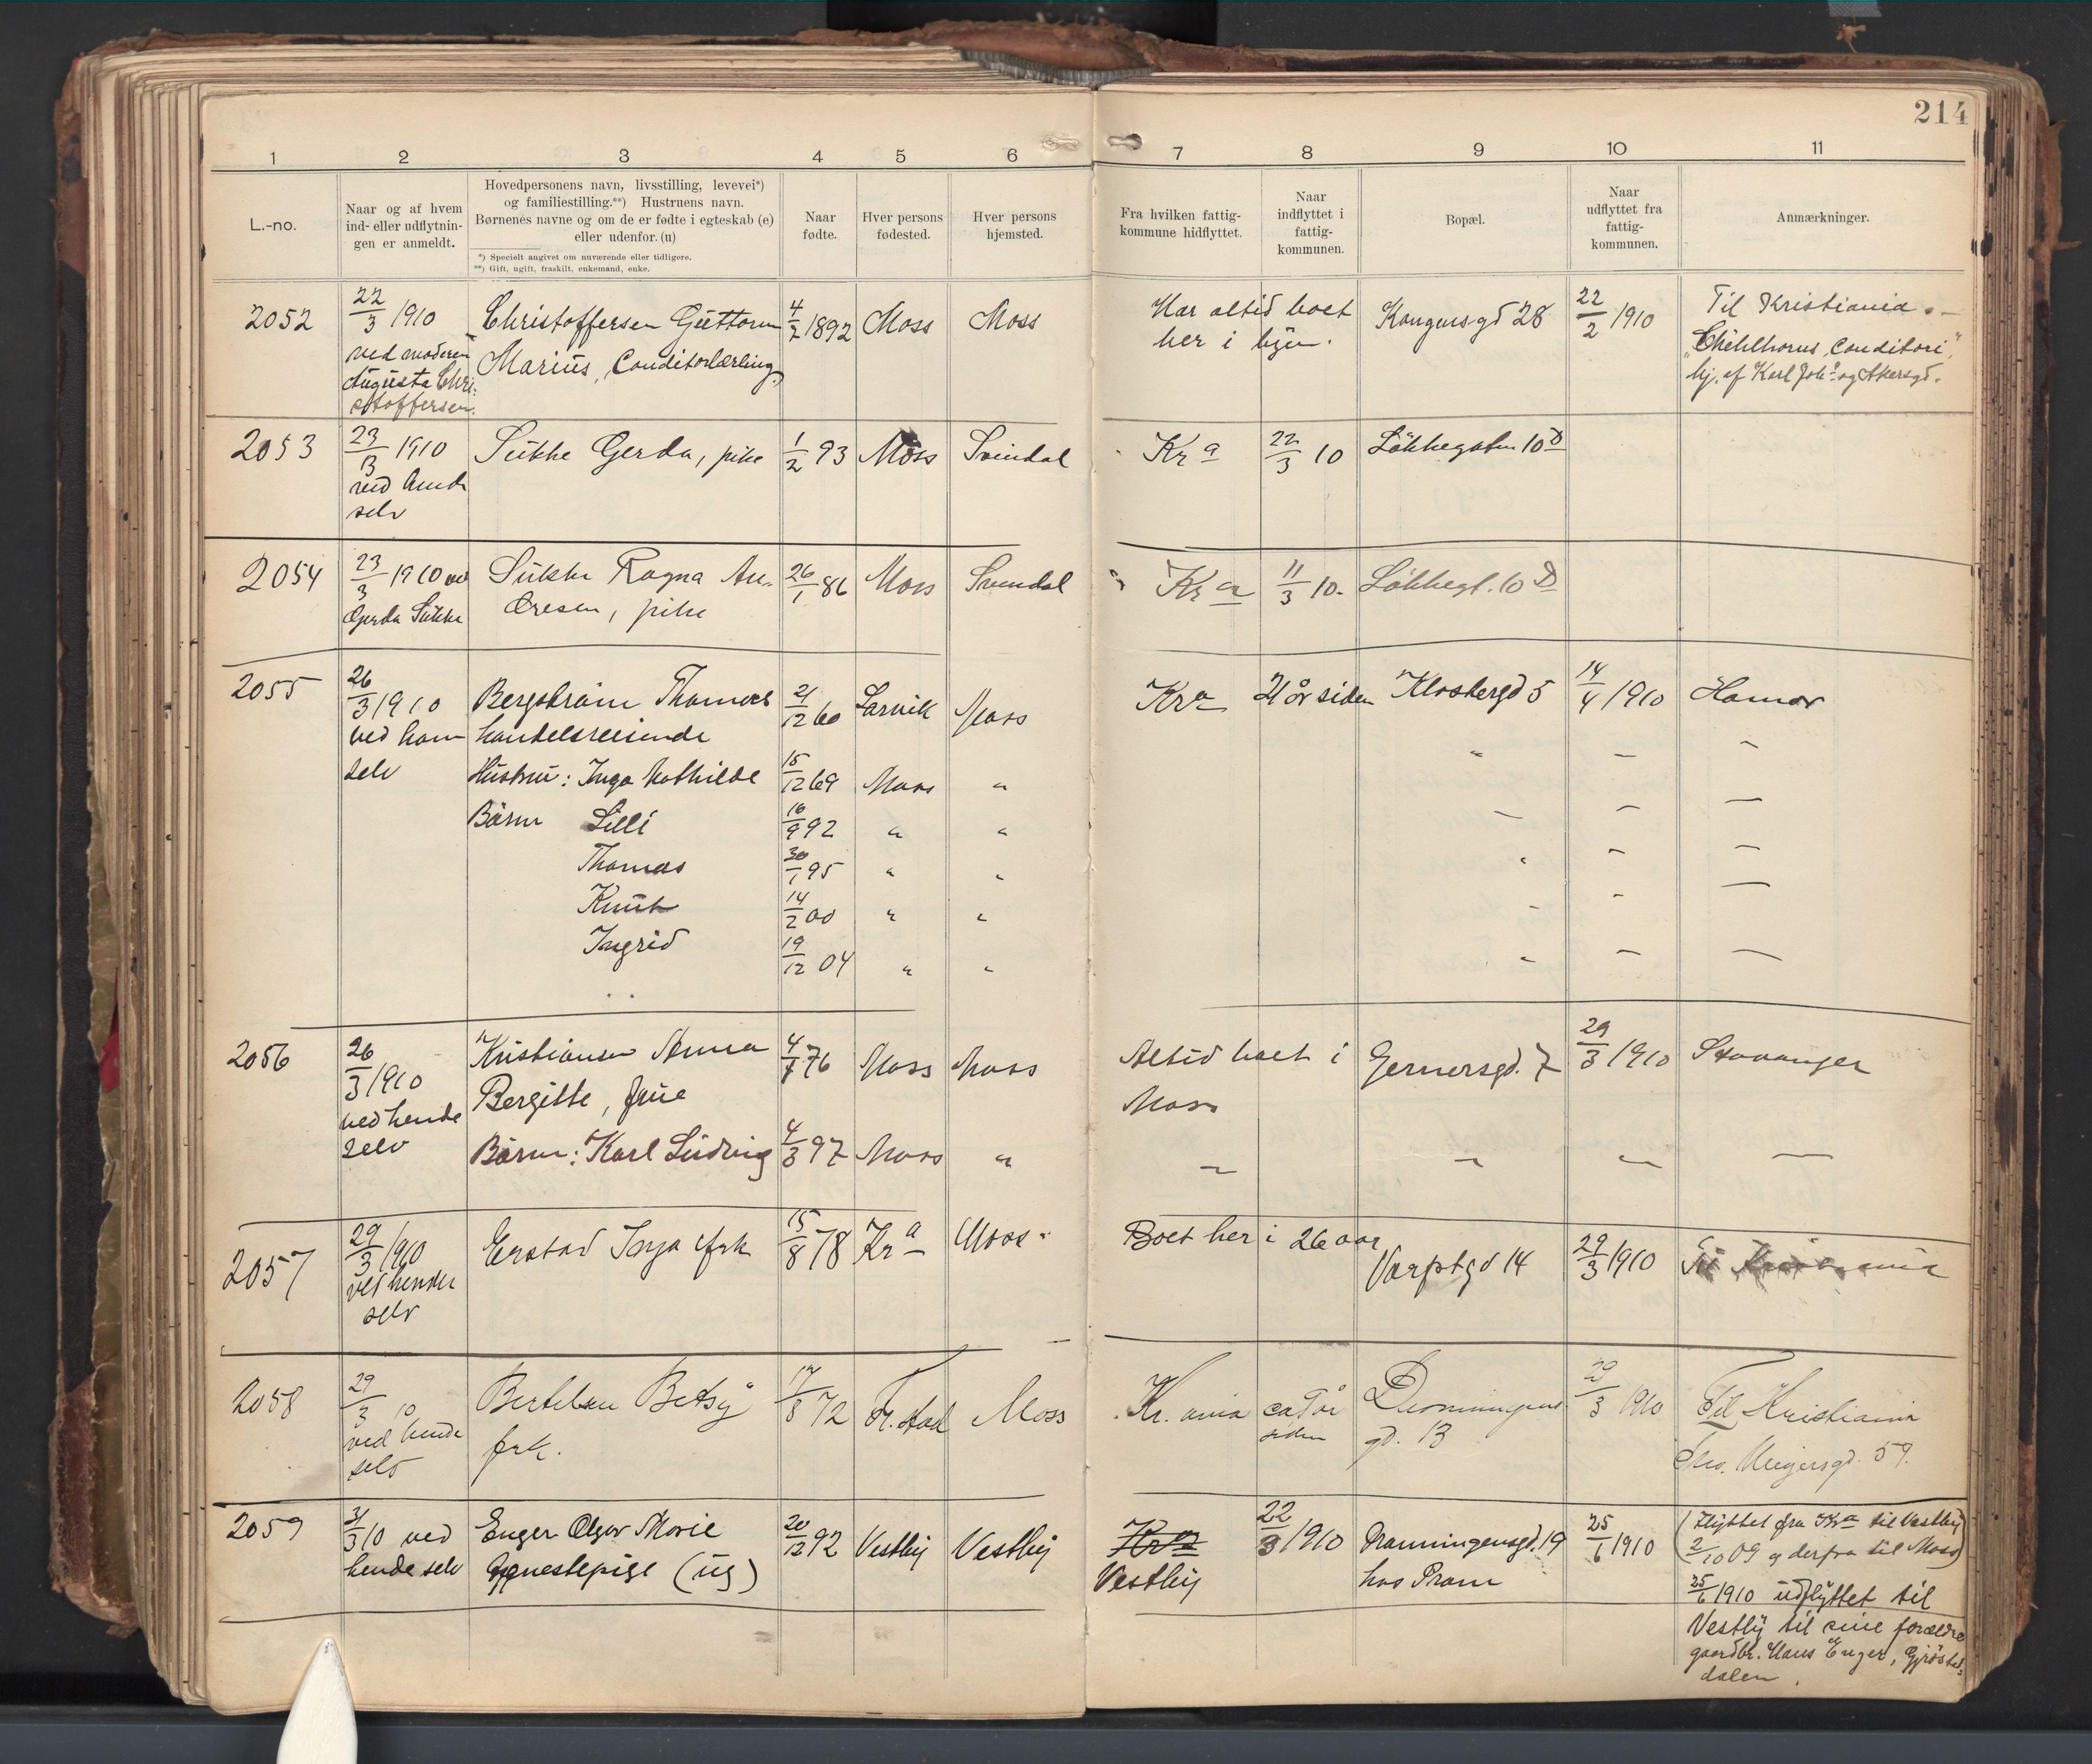 214
1 2 3 4 5 6 7 8 9 10 11
L.-no.
Naar og af hvem
ind- eller udflytnin-
gen er anmeldt.
Hovedpersonens navn, livsstilling, levevei*)
og familiestilling.**) Hustruens navn.
Børnenes navne og om de er fødte i egteskab (e)
eller udenfor. (u)
*) Specielt angivet om nuværende eller tidligere.
**) Gift, ugift, fraskilt, enkemand, enke.
Naar
fødte.
Hver persons
fødested.
Hver persons
hjemsted.
Fra hvilken fattig-
kommune hidflyttet.
Naar
indflyttet i
fattig-
kommunen.
Bopæl.
Naar
udflyttet fra
fattig-
kommunen.
Anmærkninger.
2052
22/3 1910
ved moderen
Augusta Chri-
stoffersen.
Christoffersen Guttorm
Marius, Conditorlærling
4/2 1892
Moss
Moss
Har altid boet
her i byen.
Kongensgd 28
22/2 1910
Til Kristiania.
Conditori,
hj. af Karl Joh.s og Akersgd.
2053
23/3 1910
ved hende
selv
Sukke Gerda, pike
1/2 93
Moss
Svindal
Kra
22/3 10
Løkkegaten 10 D
2054
23/3 1910 ved
Gerda Sukke
Sukke Ragna An-
dresen, pike
26/1 86
Moss
Svindal
Kra
11/3 10.
Løkkegt. 10 D
2055
26/3 1910
ved ham
selv
Bergstrøm Thomas
handelsreisende
21/12 60
Larvik
Moss
Kra
21 år siden
Klostergd 5
14/4 1910
Hamar
Hustru: Inga Mathilde
15/12 69
Moss
"
" — —
Børn Lilli
16/9 92
" "
— — —
Thomas
30/1 95
" "
" — —
Knut
14/2 00
" "
— — —
Ingrid
19/12 04
" "
" — —
2056
26/3 1910
ved hende
selv
Kristiansen Anna
Bergitte, frue
4/7 76
Moss
Moss
Altid boet i
Moss
Gernersgd. 7
29/3 1910
Stavanger
Børn: Karl Ludvig
4/3 97
Moss
"
— — — —
2057
29/3 1910
ved hende
selv
Erstad Inga frk
15/8 78
Kra
Moss
Boet her i 26 aar
Varptgd 14
29/3 1910
Til Kristiania
2058
29/3 10
ved hende
selv
Bertelsen Betsy
frk.
17/8 72
Fr.stad
Moss
Kr.ania
ca 7 år
siden
Dronningens
gd. 13
29/3 1910
Til Kristiania
Thv. Meyersgd. 59.
2059
31/3 10 ved
hende selv
Enger Olga Marie
tjenestepige (ug)
20/12 92
Vestby
Vestby
Kra
Vestby
22/3 1910
Dronningensgd. 19
hos Pram
25/6 1910
(Flyttet fra Kra til Vestby
2/10 09 og derfra til Moss)
25/6 1910 udflyttet til
Vestby til sine forældre
gaardbr. Hans Enger,
dalen.